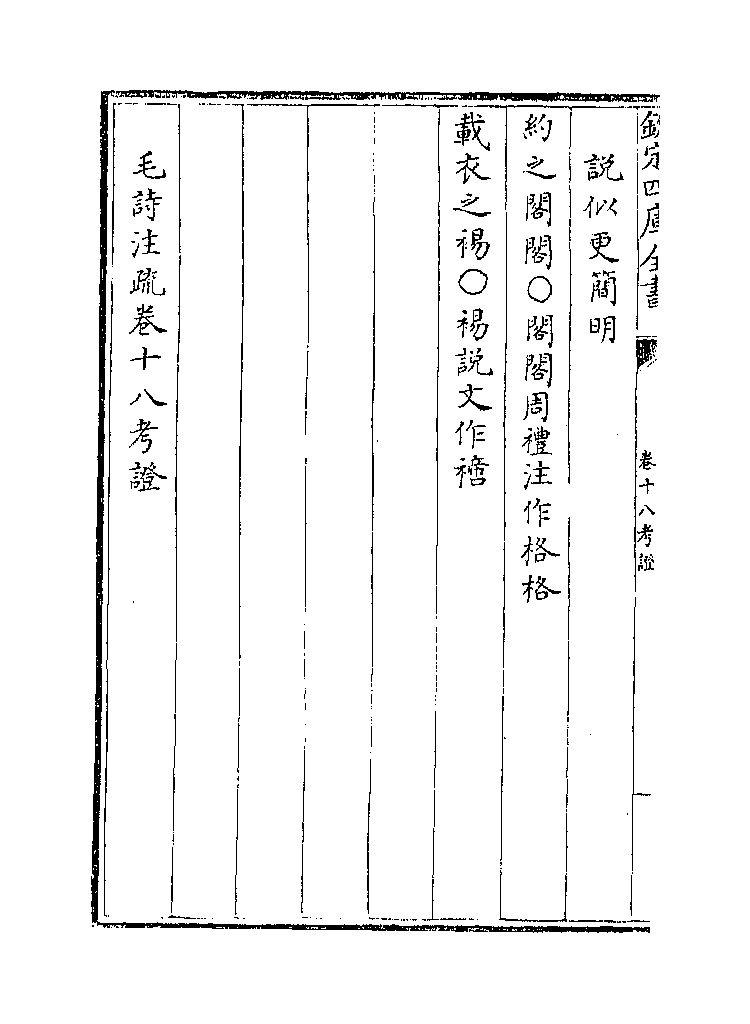 欽定四庫全書
卷十八考證
說似更簡明
約之閣閣○閣閣周禮注作格格
載衣之裼○裼說文作𧝐
毛詩注疏卷十八考證